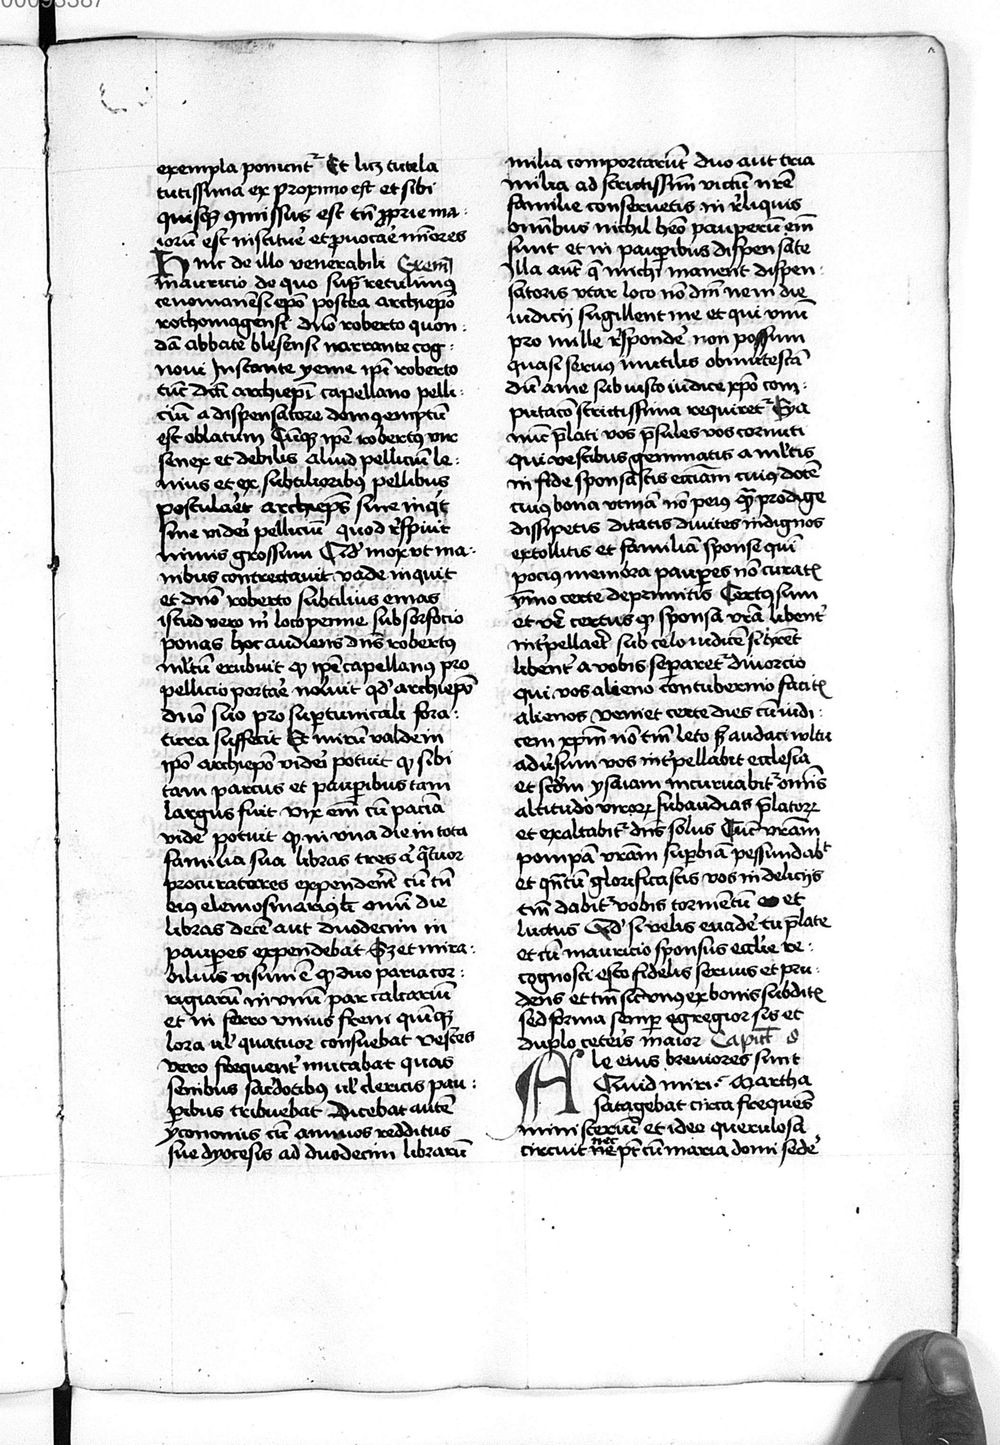 00093387
exempla ponunt᷑ Et lꝫ tutela
tutissima ex proximo est et sibi
quisqꝫ ꝯmissus est tn̄ ꝓprie ma-
iorū est instituē et ꝓuocaē mīores
Hinc de illo venerabili Exem̄
mauricio de quo sup̄ retulimꝰ
cenomanēsi epō postea archiepō
rothomagensi dn̄o roberto quon-
dā abbate blesensi narrante cog-
noui Instante yeme ip̄i roberto
tūc dicti archiep̄i capellano pelli-
ciū a dispensatore domꝰ emptū
est oblatum Cūqꝫ ip̄e robertꝰ vir
senex et debilis aliud pelliciū le-
nius et ex subtilioribꝰ pellibus
postulaēt archiep̄s sine inq̇t
sine videri pelliciū quod r̄spuit
nimis grossum Qd̓ mox vt ma-
nibus contrectauit vade inquit
et dn̄o roberto subtilius emas
istud vero in loco penne sub forforio
ponas hoc audiens dn̄s robertꝰ
ml̓tū erubuit qꝫ ip̄e capellanꝰ pro
pellicio portaē noluit qd̓ archiepō
dn̄o suo pro suptunicali fora-
tura suffecit Et mirū valde in
ip̄o archiepō videri potuit qꝫ sibi
tam parcus et paup̄ibus tam
largus fuit vix em̄ cū paciā
vidē potuit qꝫ in vna die in tota
familia sua libras tres aͥ q̄tuor
procuratores expenderēt cū tn̄
eiꝰ elemosinariꝰ om̄i die
libras decē aut duodecim in
paup̄es expendebat Sꝫ et mira-
bilius visum ē qꝫ duo paria cor-
rigiarū in vnū par calcariū
et in ferro vnius freni quīqꝫ
lora ul̓ quatuor consuebat vestes
vero frequent̓ mutabat quas
senibus sac̓dotibꝰ ul̓ clericis pau-
p̄ibus tribuebat Dicebat autē
yconomis cū annuos redditus
sue dyocesis ad duodecim librarū
milia comportarūt duo aut tria
milia ad strictissim̄ victū nr̄e
familie conseruetis in r̄liquis
om̄ibus nichil hēo paup̄erū em̄
sunt et in paup̄ibus dispensate
Illa aut̓ q̄ michi manent dispen-
satoris vtar loco nō dn̄i ne in die
iudicij sugillent me et qui vnū
pro mille r̄spondē non possum
quasi seruꝰ inutilis obmutescā
dū a me sub iusto iudice xp̄o com-
putacō strictissima requiret᷑ Eya
nūc p̄lati vos p̄sules vos cornuti
qui vestibus gemmatis a ml̓tis
in fide sponsastis ecciam cuiꝰ dotē
cuiꝰ bona vtinā nō peiꝰ qꝫ prodige
dissipetis ditatis diuites indignos
extollitis et familiā sponse qui
pociꝰ memōra paup̄es nō curatꝭ
ymo certe deprimitis Certꝰ sum
et v̓e certus qꝫ sponsa vr̄a libent̓
int̓pellaēt sub celo iudicē si h̄ret
libent̓ a vobis separet᷑ diuorcio
qui vos alieno contubernio facitꝭ
alienos veniet certe dies cū iudi-
cem xp̄m nō tm̄ leto sꝫ audaci vultu
adūsum vos int̓pellabit ecclesia
et scd̓m ysaiam incuruabit᷑ om̄is
altitudo virorꝝ subaudias p̄latorꝝ
et exaltabit᷑ dn̄s solus Tūc vrām
pompā vrām sup̄biā pessundabt̓
et qn̄tū glorificastis vos in delicijs
tm̄ dabit᷑ vobis tormētū et
luctus Qd̓ si velis euadē tu p̄late
et cū mauricio sponsus ecclie re-
cognosci esto fidelis seruus et pru-
dens et tm̄ sic vnꝰ ex bonis subditꝭ
sed forma semp̄ egregior sis et
duplo ceteris maior Capitl̓ 8
Ale eius breuiores sunt
Quid miri Martha
satagebat circa frequēs
ministeriū et ideo querulosa
circuit nec pt̓ cū maria domi sedē